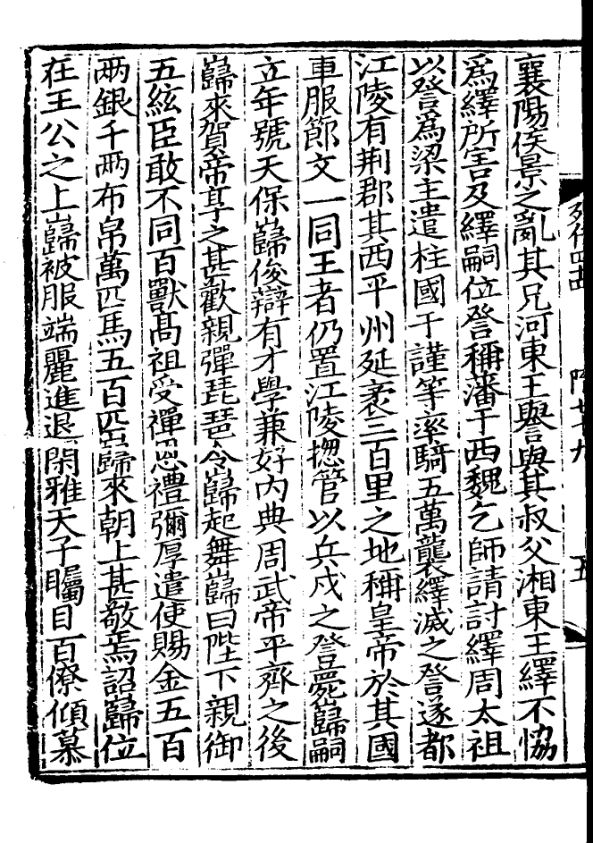 襄陽侯景之亂其兄河東王譽與其叔父湘東王繹不協
爲繹所害及繹嗣位詧稱潘于西魏乞師請討繹周太祖
以詧爲梁主遣柱國于謹等率騎五萬襲繹滅之詧遂都
江陵有荆郡其西平州延袤三百里之地稱皇帝於其國
車服節文一同王者仍置江陵揔管以兵戍之詧薨巋嗣
立年號天保巋俊辯有才學兼好内典周武帝平齊之後
巋來賀帝享之甚歡親彈琵琶令巋起舞巋曰陛下親御
五絃臣敢不同百獸髙祖受禪恩禮彌厚遣使賜金五百
兩銀千兩布帛萬匹馬五百匹巋來朝上甚敬焉詔巋位
在王公之上巋被服端麗進退閑雅天子矚目百僚傾慕